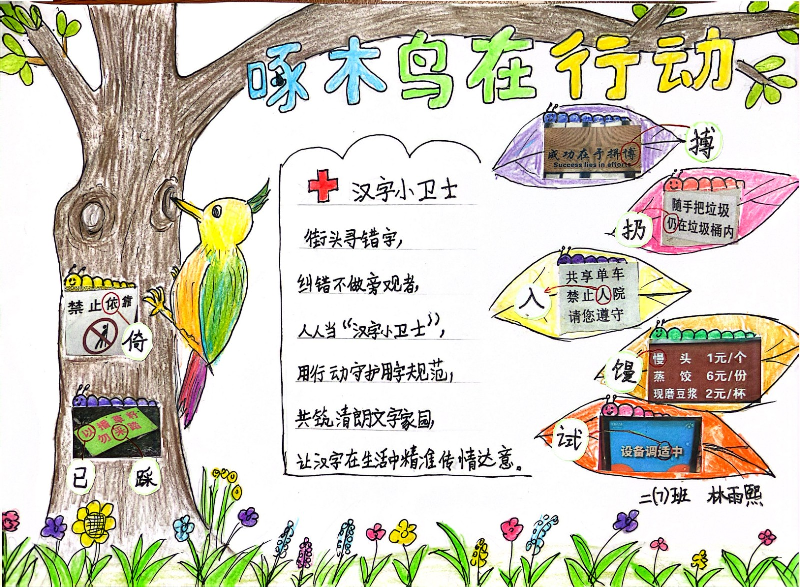 啄木鸟在行动
汉字小卫士
街头寻错字，
纠错不做旁观者，
人人当“汉字小卫士”，
用行动守护用字规范，
共筑清朗文字家园，
让汉字在生活中精准传情达意。
成功在于拼博
Success lies in efforts
搏
随手把垃圾
仍在垃圾桶内
扔
共享单车
禁止人院
请您遵守
入
慢 头 1元/个
蒸 饺 6元/份
现磨豆浆 2元/杯
馒
设备调适中
试
禁止依靠
倚
勿采踏
已 踩
二(7)班 林雨熙